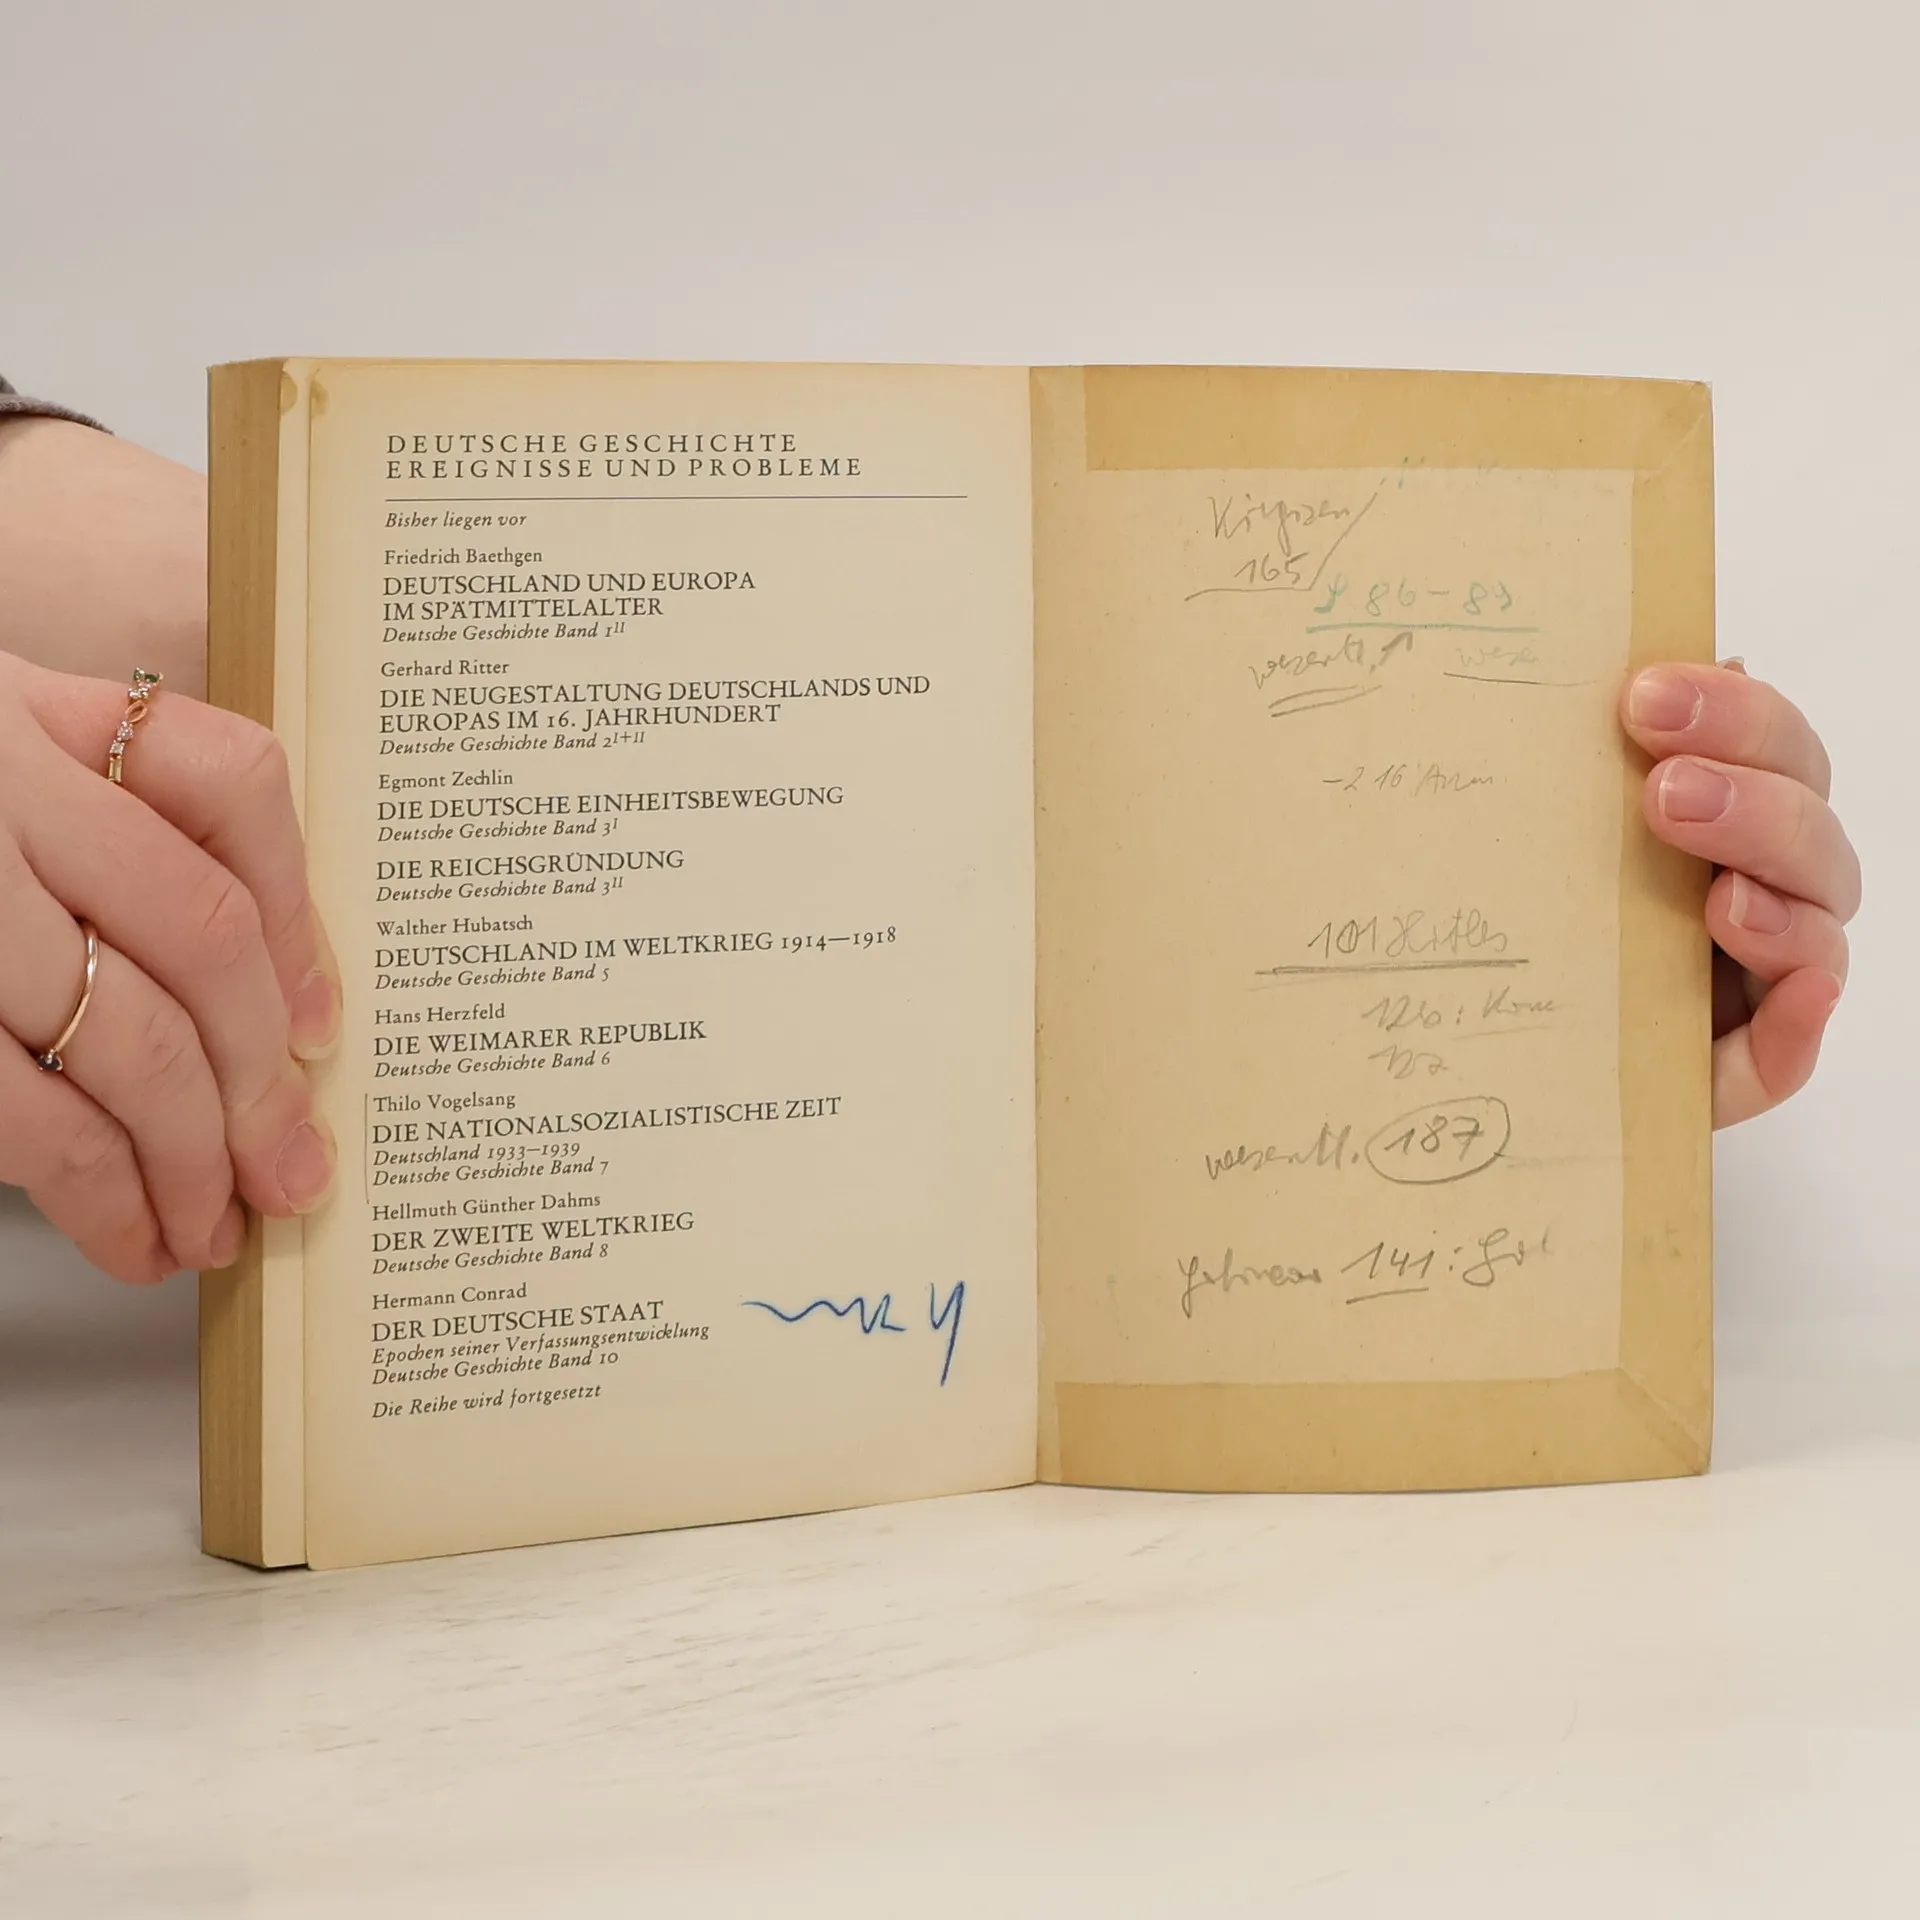 DEUTSCHE GESCHICHTE
EREIGNISSE UND PROBLEME
Bisher liegen vor
Friedrich Baethgen
DEUTSCHLAND UND EUROPA
IM SPÄTMITTELALTER
Deutsche Geschichte Band 1II
Gerhard Ritter
DIE NEUGESTALTUNG DEUTSCHLANDS UND
EUROPAS IM 16. JAHRHUNDERT
Deutsche Geschichte Band 2I+II
Egmont Zechlin
DIE DEUTSCHE EINHEITSBEWEGUNG
Deutsche Geschichte Band 3I
DIE REICHSGRÜNDUNG
Deutsche Geschichte Band 3II
Walther Hubatsch
DEUTSCHLAND IM WELTKRIEG 1914—1918
Deutsche Geschichte Band 5
Hans Herzfeld
DIE WEIMARER REPUBLIK
Deutsche Geschichte Band 6
Thilo Vogelsang
DIE NATIONALSOZIALISTISCHE ZEIT
Deutschland 1933—1939
Deutsche Geschichte Band 7
Hellmuth Günther Dahms
DER ZWEITE WELTKRIEG
Deutsche Geschichte Band 8
Hermann Conrad
DER DEUTSCHE STAAT
Epochen seiner Verfassungsentwicklung
Deutsche Geschichte Band 10
Die Reihe wird fortgesetzt
165
86-89
101 Hitler
187
141: